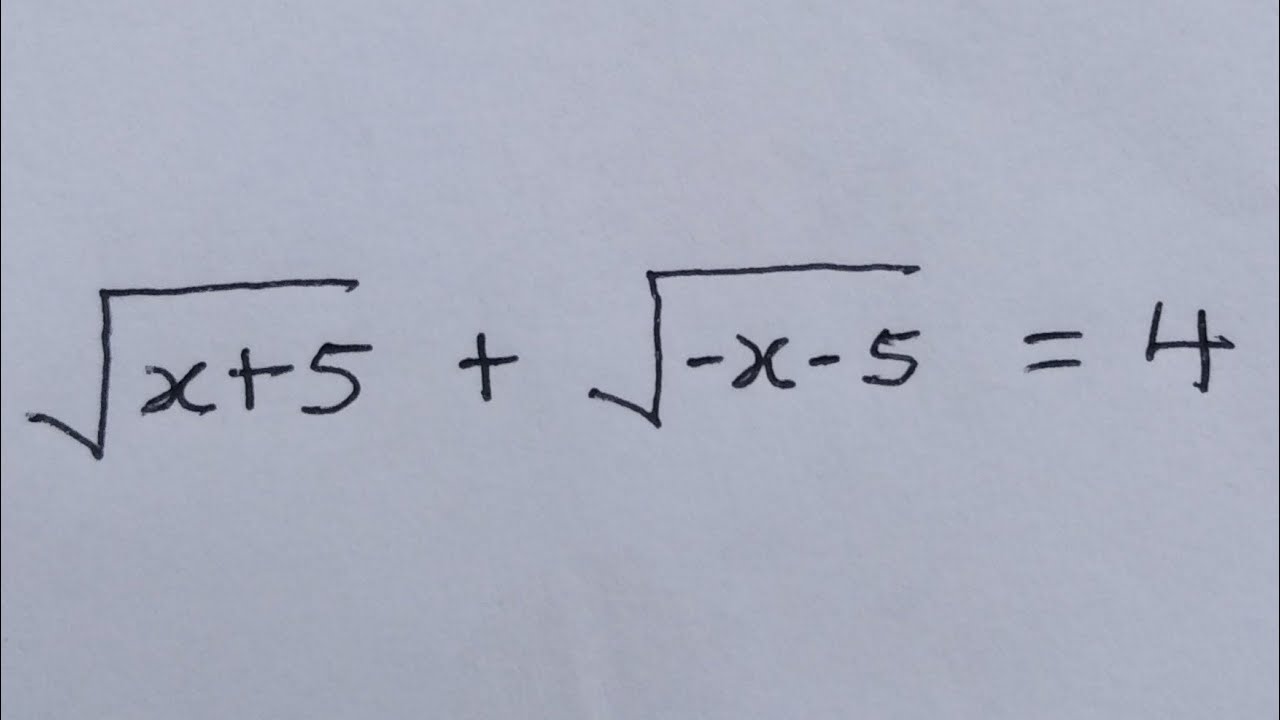 √(x+5) + √(-x-5) = 4